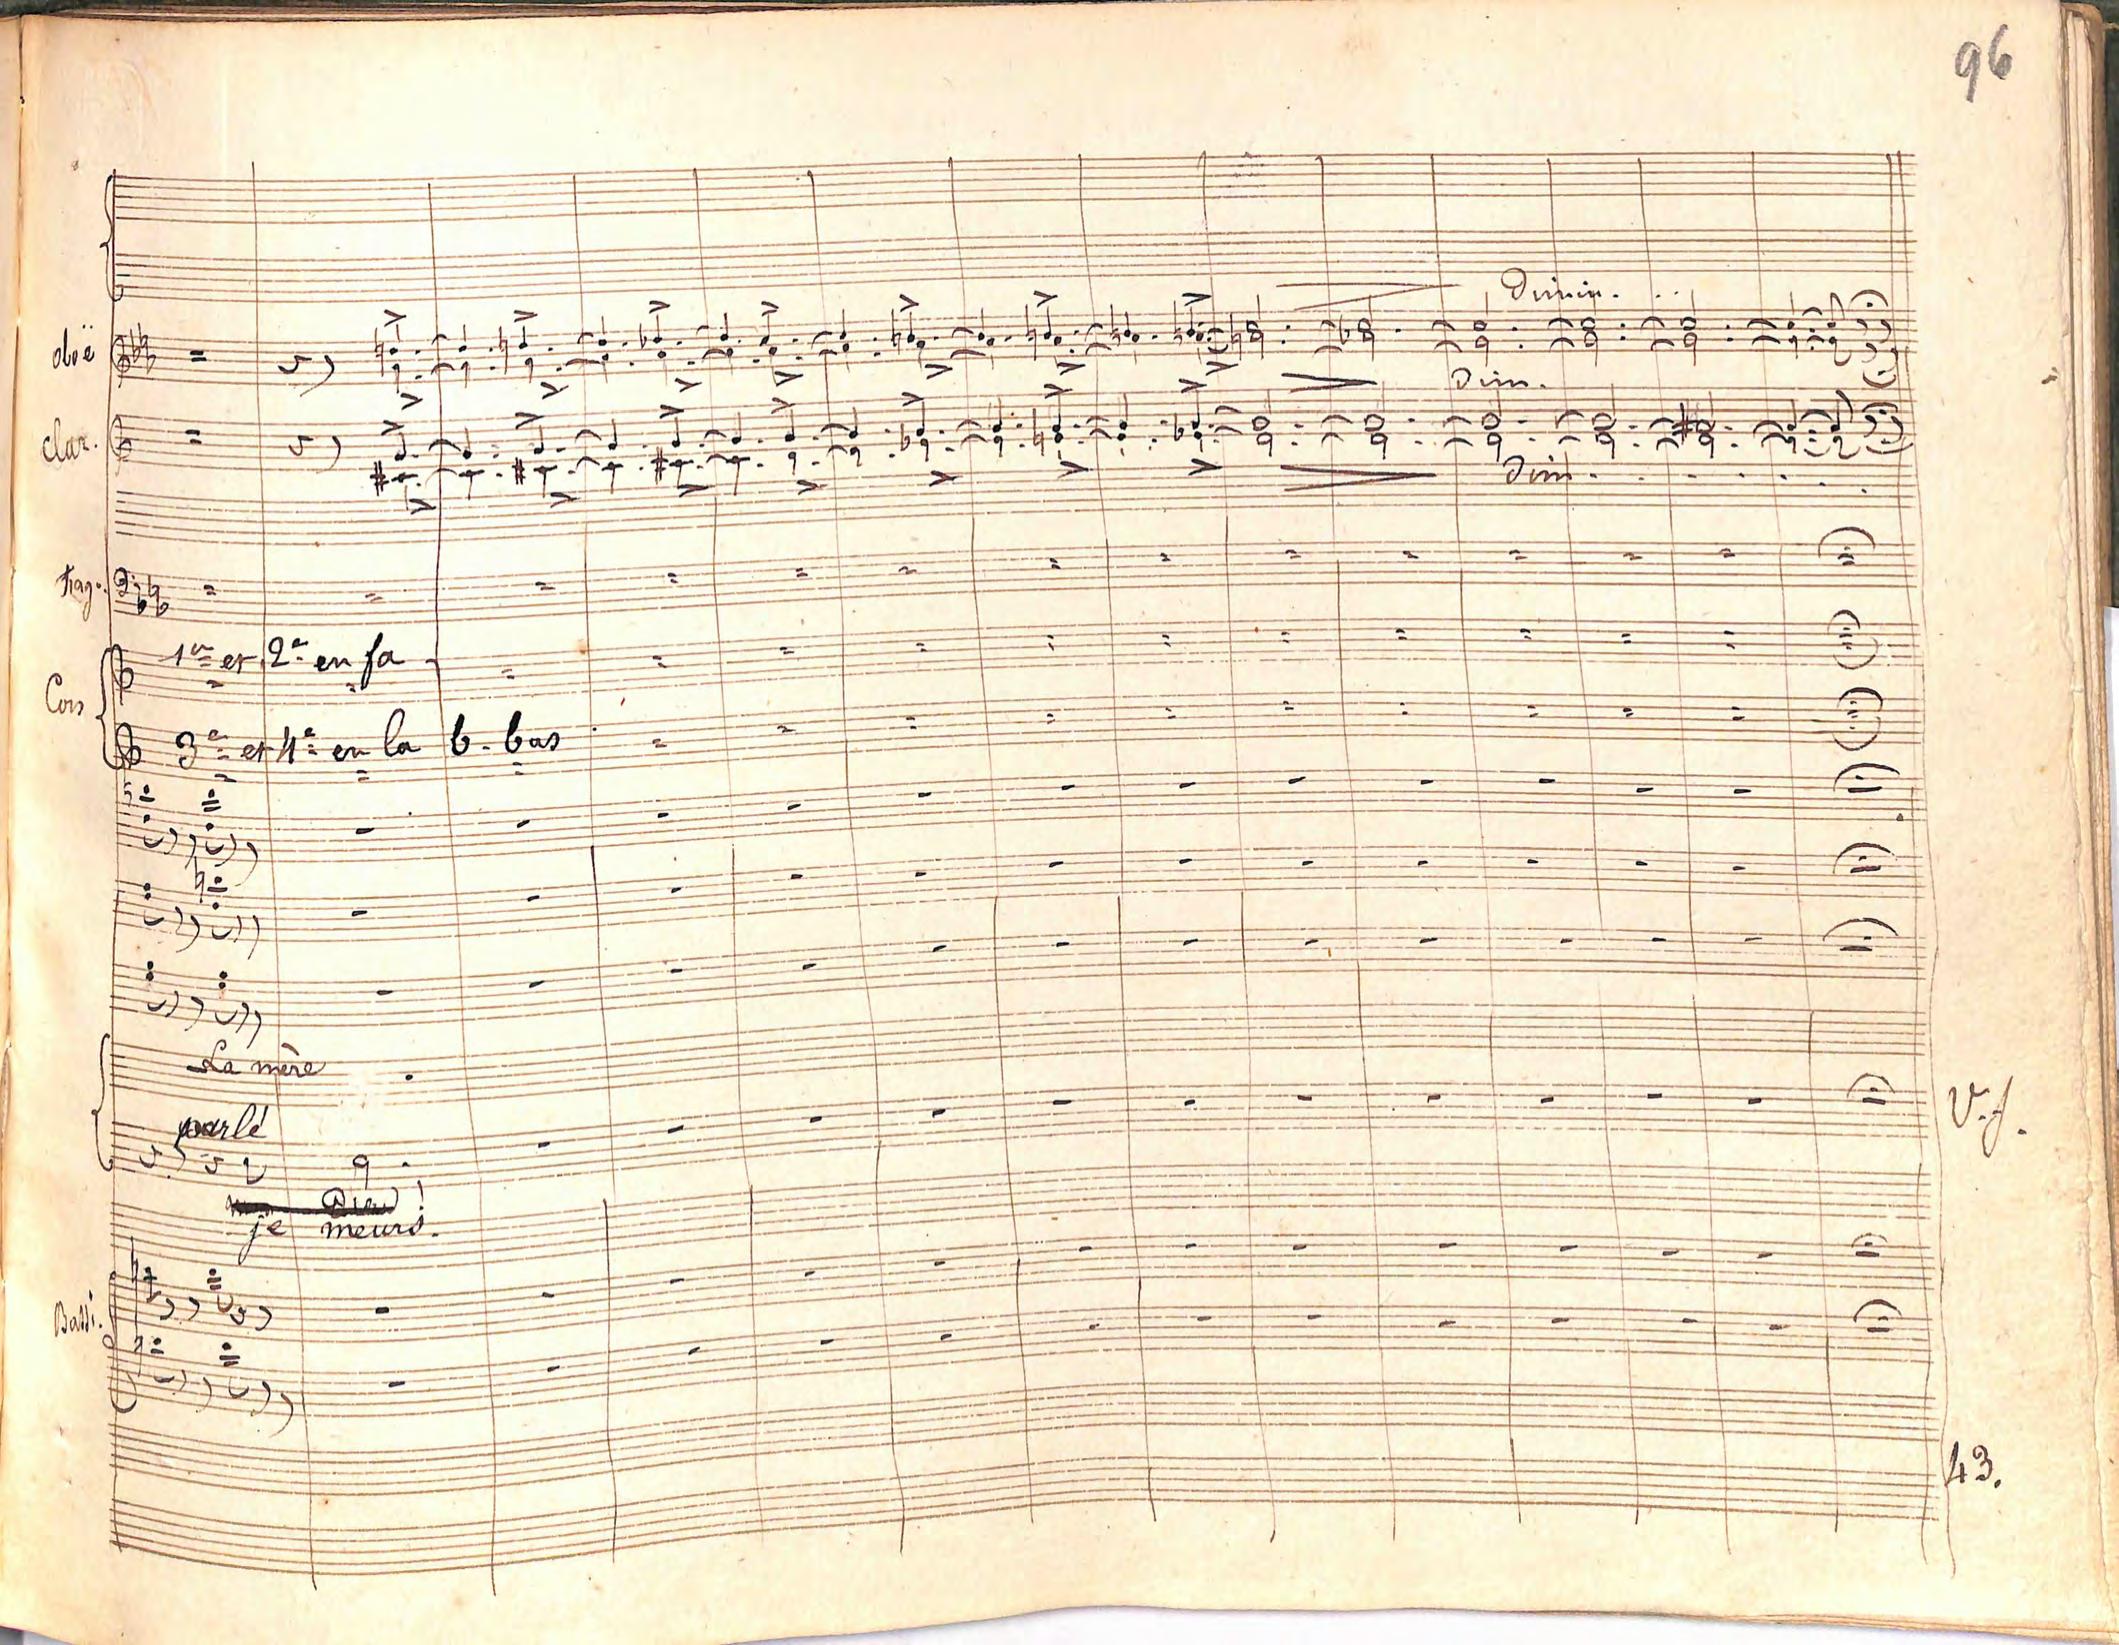 96
Dimin. . .
oboë
Dim.
clar.
Dim. . . . . . .
fag.
1er et 2e en fa
Cors
3e et 4e en la b. bas
La mère
parlé
V.S.
Dieu !
je meurs.
Bassi.
43.